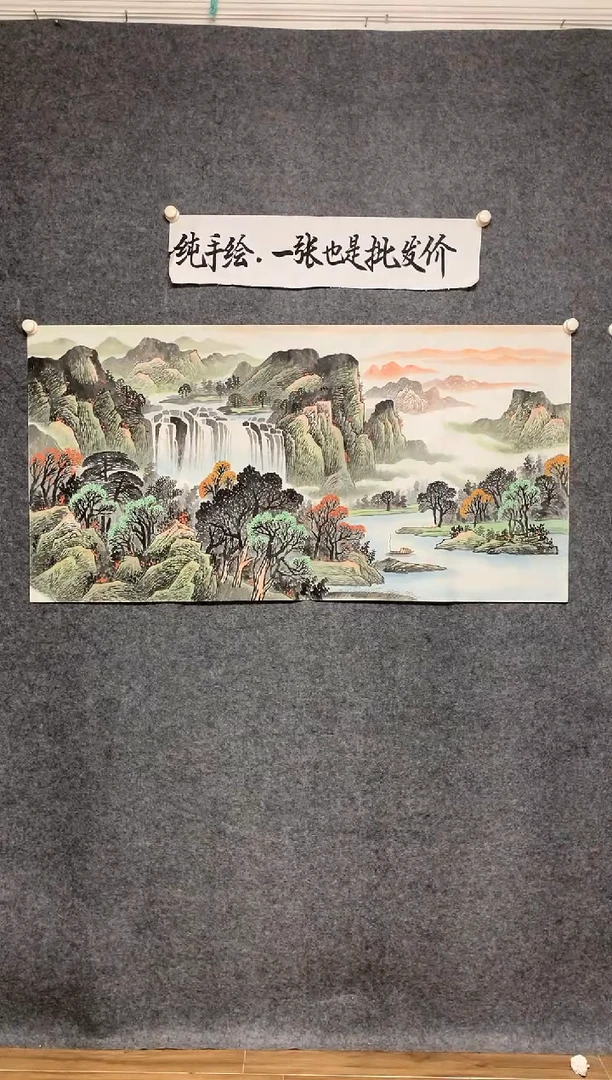 纯手绘.一张也是批发价